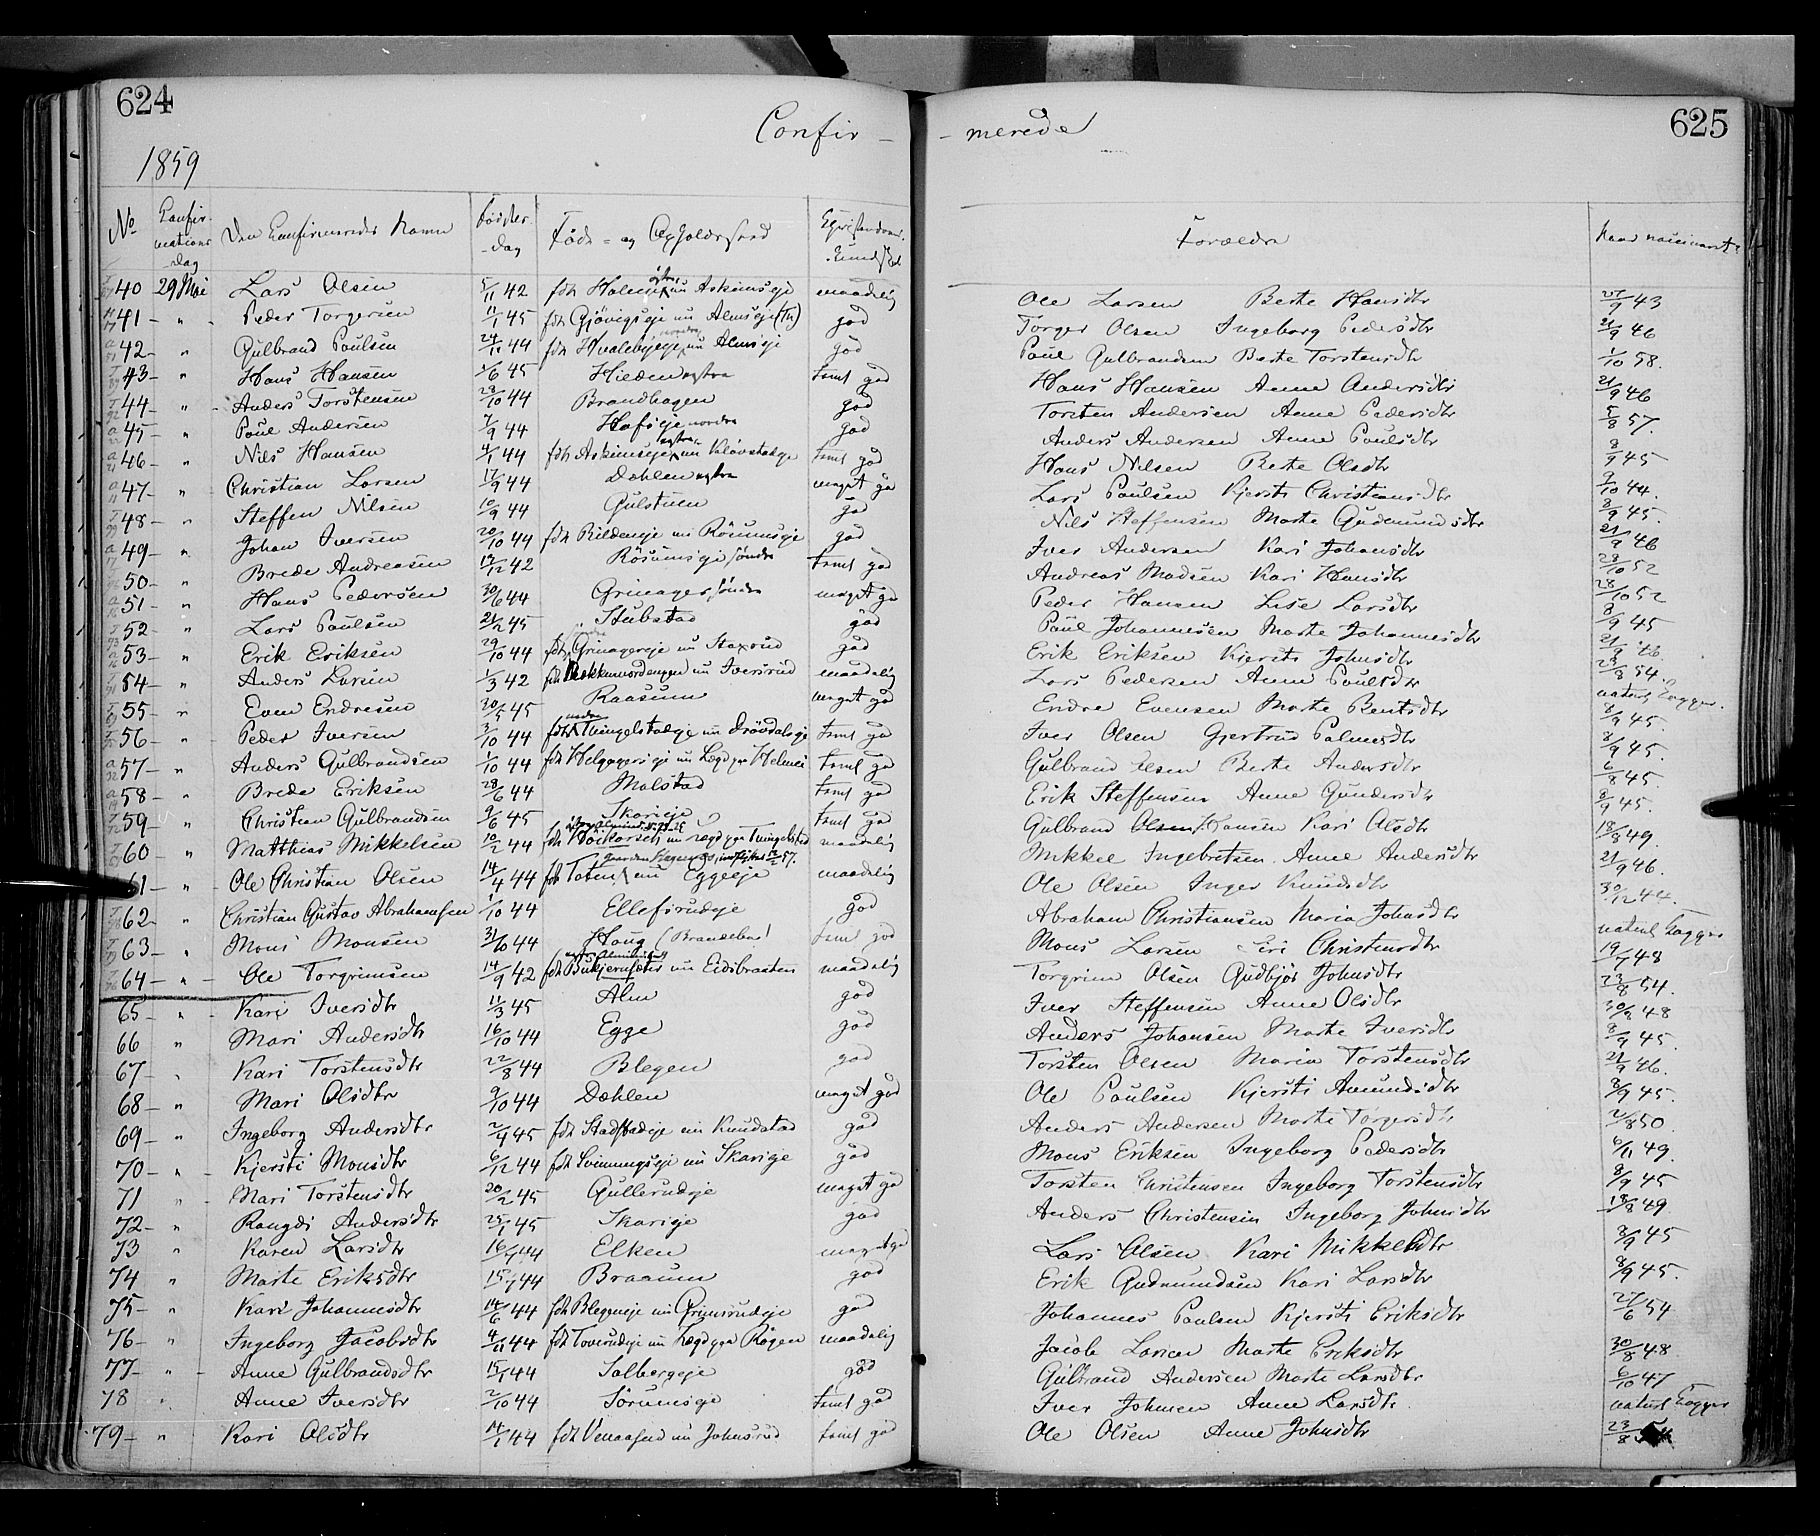 624
Confir-
-merede
625
1859
No
Confirmations dag
Den Confirmeredes Navn
Fødselsdag
Føde- og Opholdssted
Christendoms Kundskab
Forældre
Naar vaccineret
40 29 Mai Lars Olsen 5/11 42 fdt Holmeje nu Askimseje maadelig Ole Larsen Berte Hansdtr 27/9 43
41 " Peder Torgersen 11/1 45 fdt Gjövigseje nu Almseje god Torger Olsen Ingeborg Pedersdtr 21/9 46
42 " Gulbrand Paulsen 24/11 44 fdt Hvalebyeje nordre nu Almseje god Paul Gulbrandsen Berte Torstensdtr 1/10 58.
43 " Hans Hansen /6 45 Hilden østre teml god Hans Hansen Anne Andersdtr 21/9 46
44 " Anders Torstensen 28/10 44 Brandhagen god Torsten Andersen Anne Pedersdtr 5/8 57.
45 " Paul Andersen 7/9 44 Hofseje nordre god Anders Andersen Anne Paulsdtr
46 " Nils Hansen 4/1 44 fdt Askimseje østre nu Kløvstadeje teml god Hans Nilsen Berte Olsdtr 8/9 45
47 " Christian Larsen 17/9 44 Dæhlen østre meget go Lars Paulsen Kjersti Christiansdtr 7/10 44.
48 " Steffen Nilsen 10/9 44 Gulstuen go Nils Steffensen Marte Gudmundsdtr 8/9 45.
49 " Johan Iversen 20/10 44 fdt Kildeneje nu Rösumseje god Iver Andersen Kari Johansdtr 21/9 46
50 " Brede Andreasen 19/12 42 Rösumseje søndre teml god Andreas Madsen Kari Hansdtr 23/10 52
51 " Hans Pedersen 30/6 44 Grinager søndre meget go Peder Hansen Lise Larsdtr 28/10 52
52 " Lars Paulsen 21/2 45 Stubstad god Paul Johannesen Marte Johannesdtr 8/9 45
53 " Erik Eriksen 29/10 44 fdt Grinagereje nu Staxrud god Erik Eriksen Kjersti Johnsdtr 21/9 46.
54 " Anders Larsen 1/3 42 fdt Bækkenordengen nu Iversrud maadelig Lars Pedersen Anne Paulsdtr 23/8 54.
55 " Even Endresen 20/5 45 Raasum meget go Endre Evensen Marte Bentsdtr naturl Kopper.
56 " Peder Iversen 3/10 44 fdt Thingelstadeje nu Drövdalseje teml go Iver Olsen Gjertrud Palmesdtr 8/9 45.
57 " Anders Gulbrandsen 1/10 44 fdt Helgagerseje nu Lægd paa Helmei teml go Gulbrand Olsen Berte Andersdtr 8/9 45.
58 " Brede Eriksen 28/6 44 Molstad teml god Erik Steffensen Anne Gundersdtr 6/8 45.
59 " Christian Gulbrandsen 9/6 45 Skarieje teml go Gulbrand Hansen Kari Olsdtr 8/9 45.
60 " Matthias Mikkelsen 10/2 44 nu Lægd paa Tingelstad maadelig Mikkel Ingebretsen Anne Andersdtr 18/8 49.
61 " Ole Christian Olsen 14/4 44 fdt Toten nu Eggeeje maadelig Ole Olsen Inger Knudsdtr 21/9 46.
62 " Christian Gustav Abrahamsen 1/10 44 Ellefsrudeje god Abraham Christiansen Maria Johnsdtr 30/12 44.
63 " Mons Monsen 31/10 44 Houg (Brandebu) temt god Mons Larsen Siri Christensdtr naturl Kopper
64 " Ole Torgrimsen 14/9 42 nu Eidsbraaten maadelig Torgrim Olsen Gudbjör Johnsdtr 19/7 48
65 " Kari Iversdtr 11/3 45 Alm god Iver Steffensen Anne Olsdtr 23/8 54.
66 " Mari Andersdtr 16/10 44 Egge god Anders Johansen Marte Iversdtr 30/8 48
67 " Kari Torstensdtr 22/8 44 Blegen god Torsten Olsen Maria Torstensdtr 8/9 45.
68 " Mari Olsdtr 9/10 44 Dæhlen meget god Ole Paulsen Kjersti Amundsdtr 21/9 46.
69 " Ingeborg Andersdtr 2/4 45 fdt Stadstadeje nu Knudstad god Anders Andersen Marte Torgersdtr 8/9 45.
70 " Kjersti Monsdtr 6/12 44 fdt Svinningseje nu Skarieje god Mons Eriksen Ingeborg Pedersdtr 2/8 50
71 " Mari Torstensdtr 20/2 45 Gullerudeje meget go Torsten Christensen Ingeborg Torstensdtr 6/11 49.
72 " Rangdi Andersdtr 25/1 45 Skarieje god Anders Christensen Ingeborg Johnsdtr 8/9 45
73 " Karen Larsdtr 16/7 44 Elken meget go Lars Olsen Kari Mikkelsdtr 18/8 49.
74 " Marte Eriksdtr 15/7 44 Braaum god Erik Gudmundsen Kari Larsdtr 8/9 45
75 " Kari Johannesdtr 14/6 44 fdt Blegeneje nu Grimsrudeje god Johannes Paulsen Kjersti Eriksdtr 8/9 45.
76 " Ingeborg Jacobsdtr 4/11 44 fdt Toverudeje nu Lægd paa Røgen maadelig Jacob Larsen Marte Eriksdtr 27/6 54
77 " Anne Gulbrandsdtr 15/1 44 Solbergeje god Gulbrand Andersen Marte Larsdtr 30/8 48.
78 " Anne Iversdtr 2/10 44 Sörumseje temt god Iver Johnsen Anne Larsdtr 6/10 47
79 " Kari Olsdtr 14/1 44 nu Johnsrud temt god Ole Olsen Anne Johnsdtr naturl Kopper
23/8